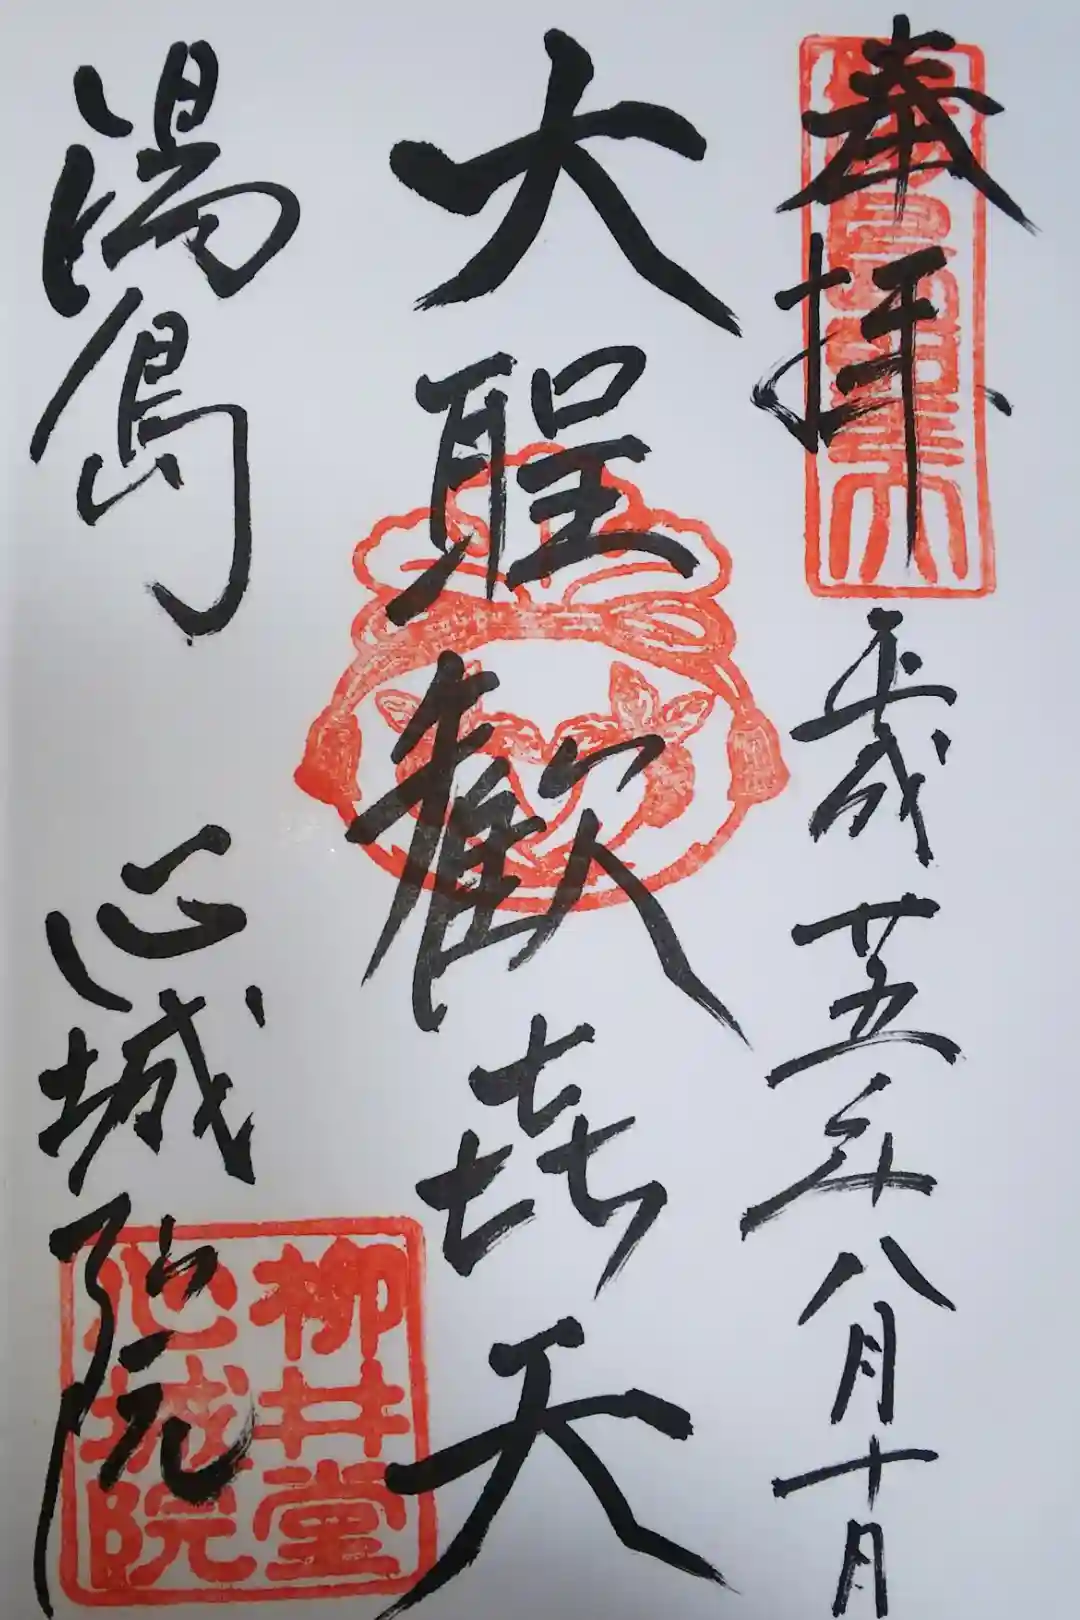 奉拝
平成廿五年八月十日
大聖歓㐂天
湯島 心城院
柳井堂
心城院